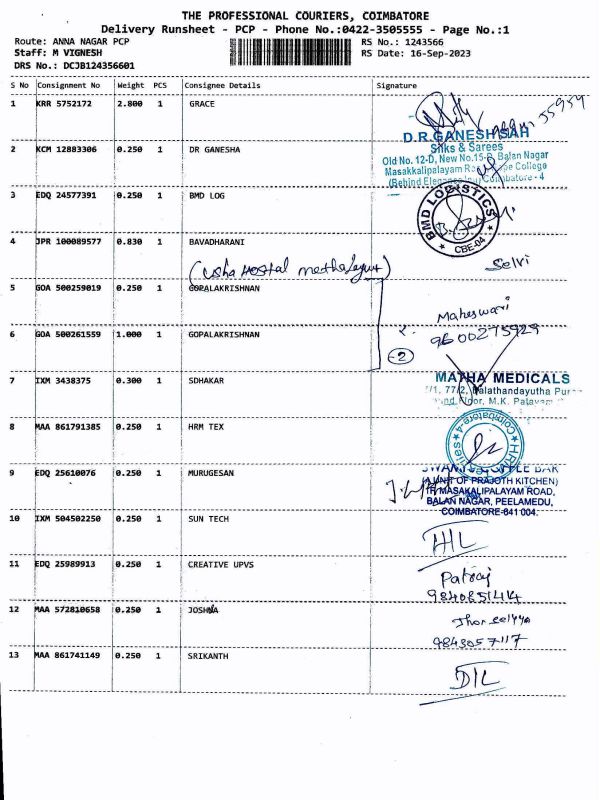 THE PROFESSIONAL COURIERS, COIMBATORE
Delivery Runsheet - PCP - Phone No.:0422-3505555 - Page No.:1
Route: ANNA NAGAR PCP RS No.: 1243566
Staff: M VIGNESH RS Date: 16-Sep-2023
DRS No.: DCJB124356601
S No Consignment No Weight PCS Consignee Details Signature
1 KRR 5752172 2.800 1 GRACE
D.R.GANESH SAH
2 KCM 12883306 0.250 1 DR GANESHA Silks & Sarees
Old No. 12-D, New No.15-B, Balan Nagar
Masakkalipalayam College
(Behind Coimbatore - 4
3 EDQ 24577391 0.250 1 BMD LOG BMD LOGISTICS
* CBE-04 *
4 JPR 100089577 0.830 1 BAVADHARANI
(Usha Hostal Selvi
5 GOA 500259019 0.250 1 GOPALAKRISHNAN
Maheswari
6 GOA 500261559 1.000 1 GOPALAKRISHNAN 9600275929
-2
7 IXM 3438375 0.300 1 SDHAKAR MATHA MEDICALS
77/2, Palathandayutha
Floor, M.K. Palayam
8 MAA 861791385 0.250 1 HRM TEX Coimbatore-4
9 EDQ 25610076 0.250 1 MURUGESAN
(A UNIT OF PRAJOTH KITCHEN)
MASAKALIPALAYAM ROAD,
BALAN NAGAR, PEELAMEDU,
COIMBATORE-641 004.
10 IXM 504502250 0.250 1 SUN TECH
11 EDQ 25989913 0.250 1 CREATIVE UPVS
12 MAA 572810658 0.250 1 JOSHNA
9843057117
13 MAA 861741149 0.250 1 SRIKANTH
DIL